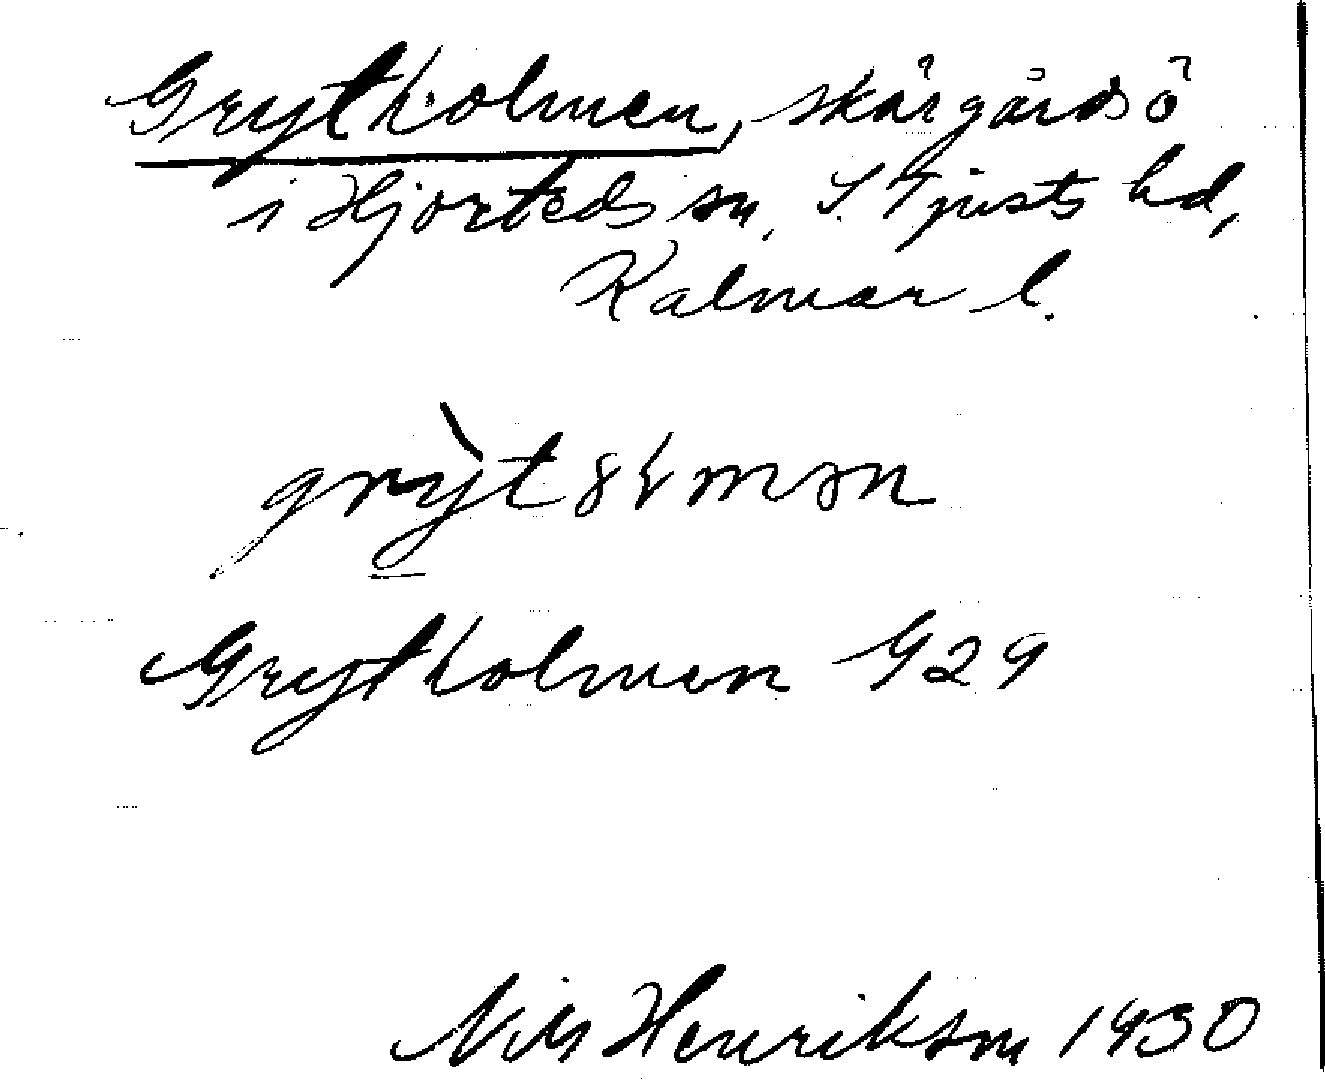 Grytholmen, skärgårdsö
i Hjorteds sn, S. Tjusts hd,
Kalmar l.
Grytholmen G29
Nils Henriksson 1930